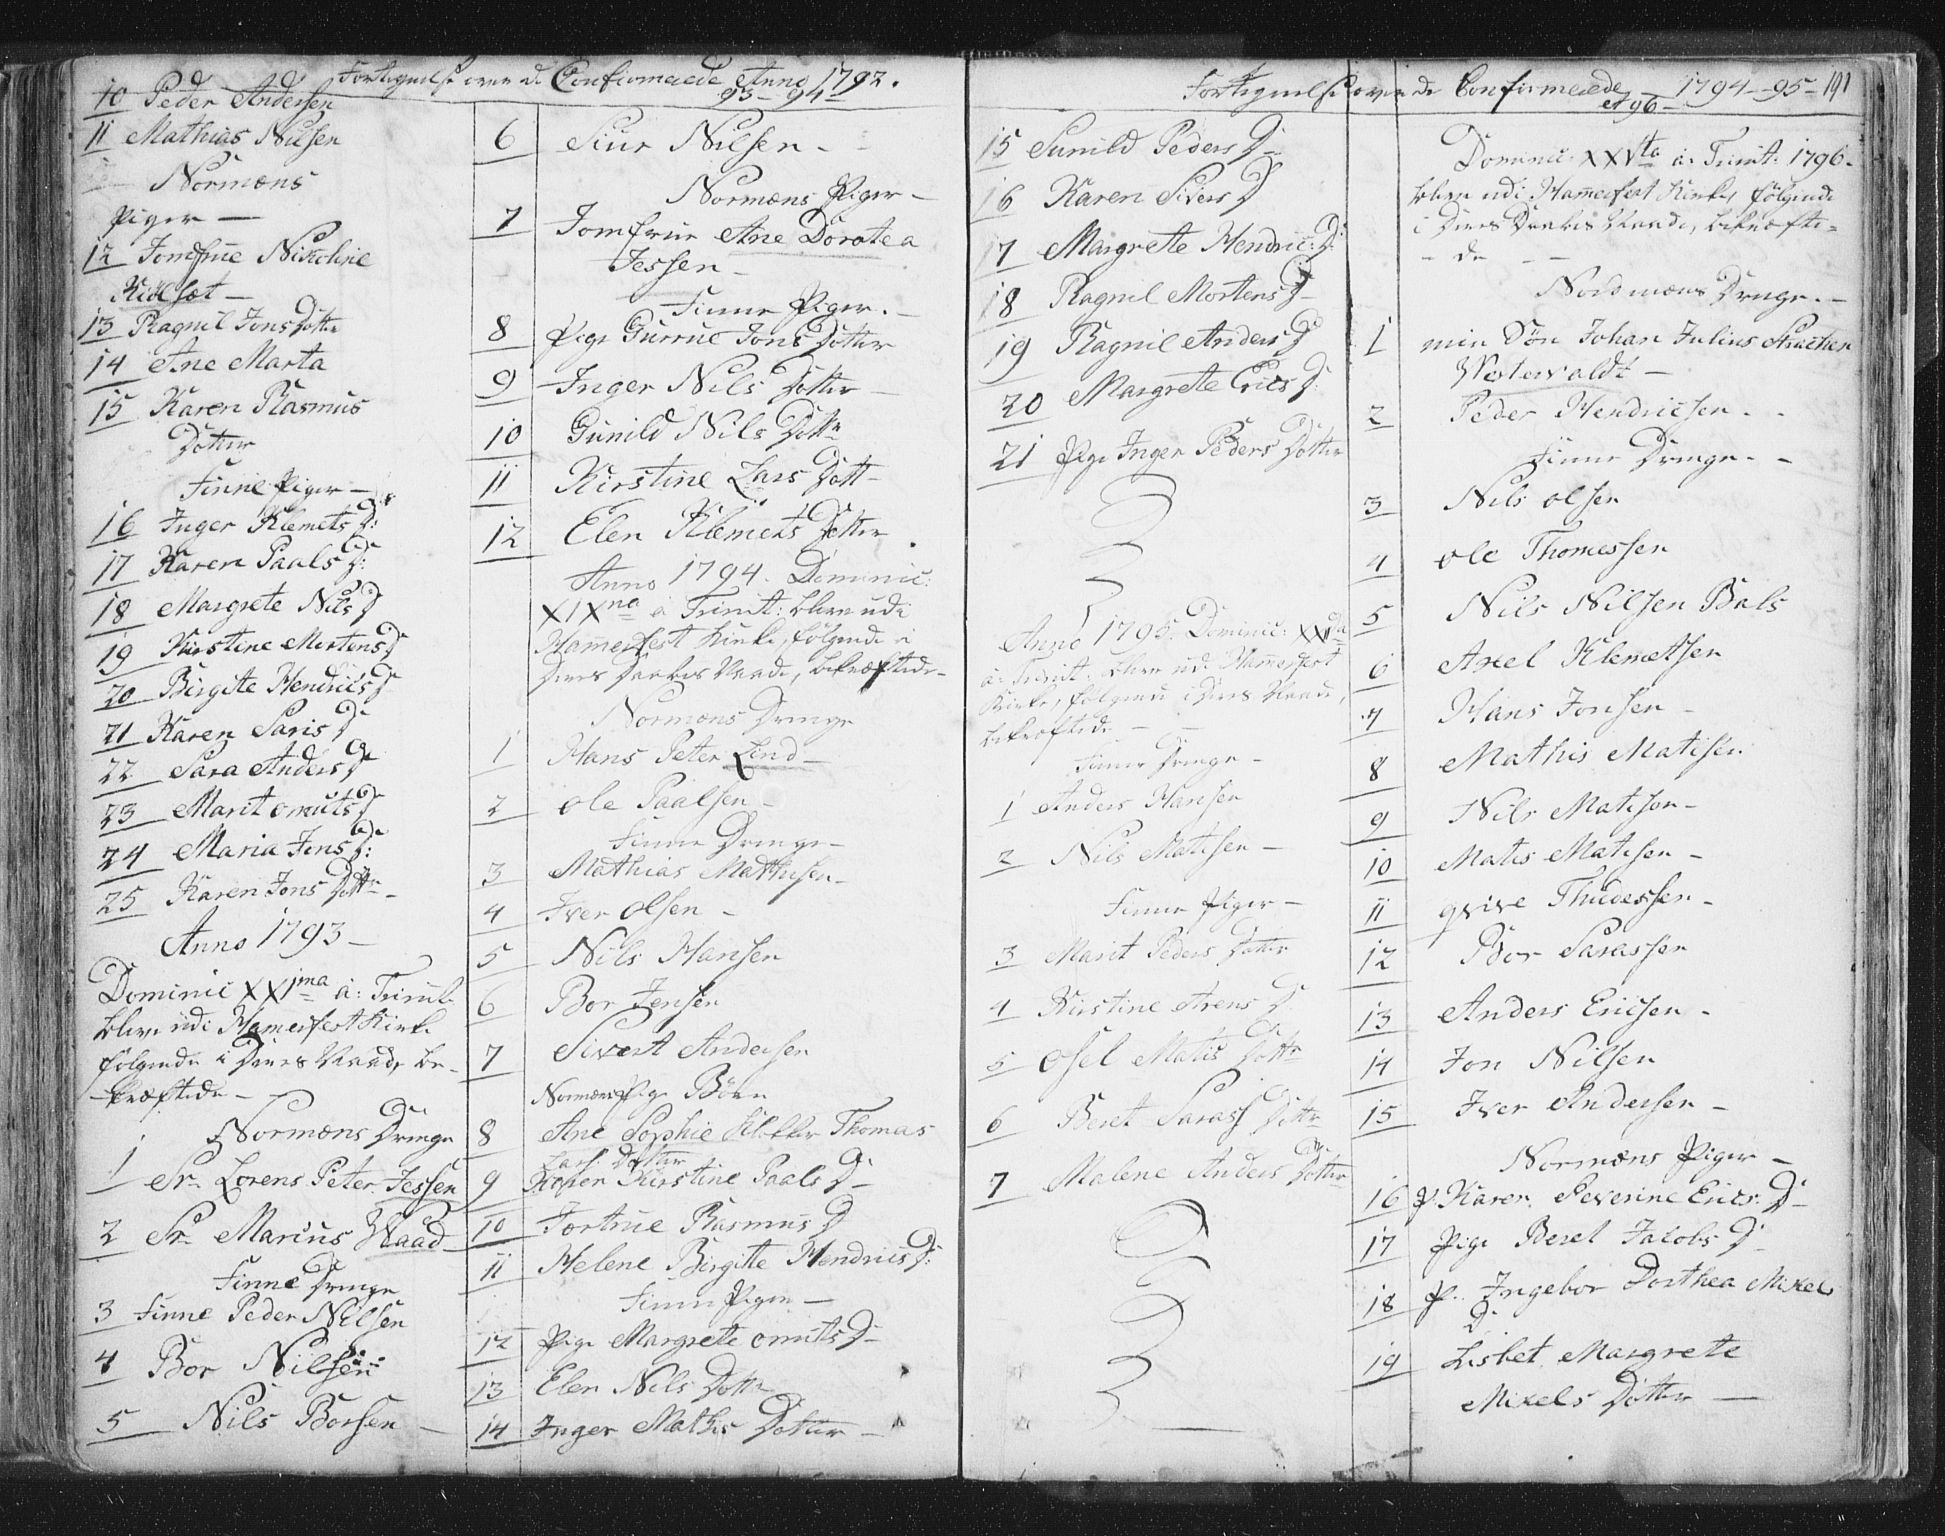 Fortegnelse over de Confirmerede Anno 1792.
93-94
10 Peder Andersen
11 Mathias Nilsen
Normæns
Piger —
12 Jomfrue Nikoline
Kielsæt —
13 Ragnil Jons Dotter
14 Ane Marta
15 Karen Rasmus
Dotter
Finne Piger —
16 Inger Klemets D:
17 Karen Paals D:
18 Margrete Nils D
19 Kirstine Mortens D
20 Birgite Hendrics D
21 Karen Saris D
22 Sara Anders D
23 Marit omuts D
24 Maria Jens D:
25 Karen Jons Dottr —
Anno 1793 —
Dominic XXIma a: Trinit:
bleve udi Hamerfest Kirke
følgende i Deres Daab, be-
kræftede —
Normæns Drenge
1 Sr. Lorens Peter Jessen
2 Sr. Marius Waad
Finne Drenge
3 Finne Peder Nilsen
4 Bor Nilsen
5 Nils Borsen —
6 Siur Nilsen —
Normæns Piger —
7 Jomfrue Ane Dorotea
Jessen —
Finne Piger. —
8 Pige Gurrue Jons Dotter
9 Inger Nils Dotter —
10 Gunild Nils Dottr
11 Kirstine Lars Dott —
12 Elen Klemets Dotter
Anno 1794. Dominic:
XIXna a Trinit: bleve udi
Hamerfest Kirke, følgende i
Deres Daabes Naade, bekræftede —
Normæns Drenge
1 Hans Peter Lind —
2 ole Paalsen —
Finne Drenge —
3 Mathias Mathisen —
4 Iver olsen —
5 Nils Hansen
6 Bor Jensen
7 Sivert Andersen
Normæns Pige Børn
8 Ane Sophie Klokker Thomas
Lars. Dotter
9 Karen Kirstine Paals D —
10 Tortrue Rasmus D
11 Helene Birgitte Hendrics D:
Finne Piger —
12 Pige Margrete omuts D —
13 Elen Nils Dottr
14 Inger Mathis Dotter —
Fortegnelse over de Confirmerede 1794-95- 191
et 96 —
15 Gunild Peders D —
16 Karen Sivers D
17 Margrete Hendric: D:
18 Ragnil Mortens D —
19 Ragnil Anders D
20 Margrete Erics D:
21 Pige Inger Peders Dotter
Anno 1795. Dominic: XXIda
a: Trinit: bleve udi Hamerfest
Kirke, følgende i Deres Naade,
bekræftede —
Finne Drenge —
1 Anders Hansen
2 Nils Matisen —
Finne Piger —
3 Marit Peders Dotter
4 Kirstine Arens D
5 Osel Matis Dottr
6 Beret Sarass Dottr
7 Malene Anders Dotter
Dominic: XXVta a: Trinit: 1796.
bleve udi Hamerfest Kirke, følgende
i Deres Daabes Naade, bekræfte-
- de —
Nordmæns Drenge. —
1 min Søn Johan Julius
Westervaldt —
2 Peder Hendricsen. -
Finne Drenge. —
3 Nils olsen
4 ole Thomessen
5 Nils Nilsen Bals
6 Axel Klemetsen
7 Hans Jonsen —
8 Mathis Matisen
9 Nils Matisen —
10 Matis Matisen —
11 qvive Thudessen —
12 Bor Sarassen
13 Anders Ericsen —
14 Jon Nilsen
15 Iver Andersen —
Normæns Piger —
16 P. Karen Severine Erics D —
17 Pige Beret Jacobs D
18 P. Ingebor Dorthea Mikels
D.
19 Lisbet Margrete
Mikels Dotter —